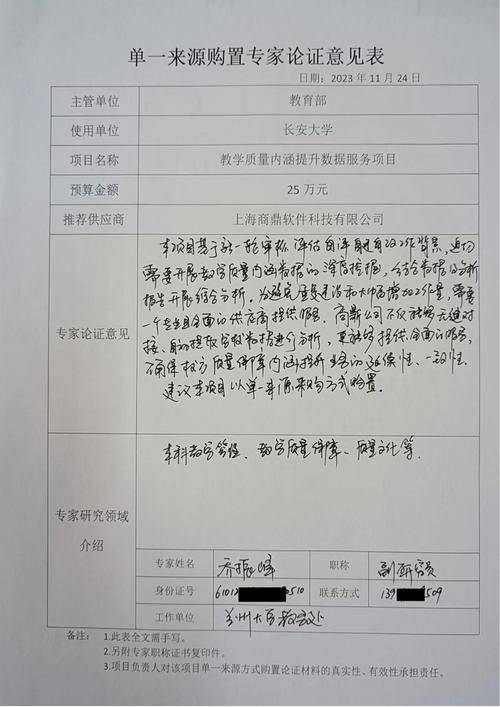 单一来源购置专家论证意见表
日期：2023 年 11 月 24 日
主管单位 教育部
使用单位 长安大学
项目名称 教学质量内涵提升数据服务项目
预算金额 25 万元
推荐供应商 上海商鼎软件科技有限公司
专家论证意见
本项目基于新一轮审核评估自评自建自改工作背景，迫切
需要开展教学质量内涵数据的深度挖掘，结合数据及分析
报告开展综合分析。为避免重复建设和大幅增加工作量，需要
一个专业且全面的供应商提供服务。商鼎公司不仅能够无缝对
接、自动提取学校数据进行分析，更能够提供全面的服务，
确保校方质量保障内涵提升业务的延续性、一致性。
建议本项目以单一来源采购方式购置。
专家研究领域
介绍
本科教学管理、教学质量保障、质量文化等。
专家姓名 乔振峰 职称 副研究员
身份证号 61012 0510 联系方式 139 509
工作单位 兰州大学教务处
备注： 1.此表全文需手写。
2.另附专家职称证书复印件。
3.项目负责人对该项目单一来源方式购置论证材料的真实性、有效性承担责任。